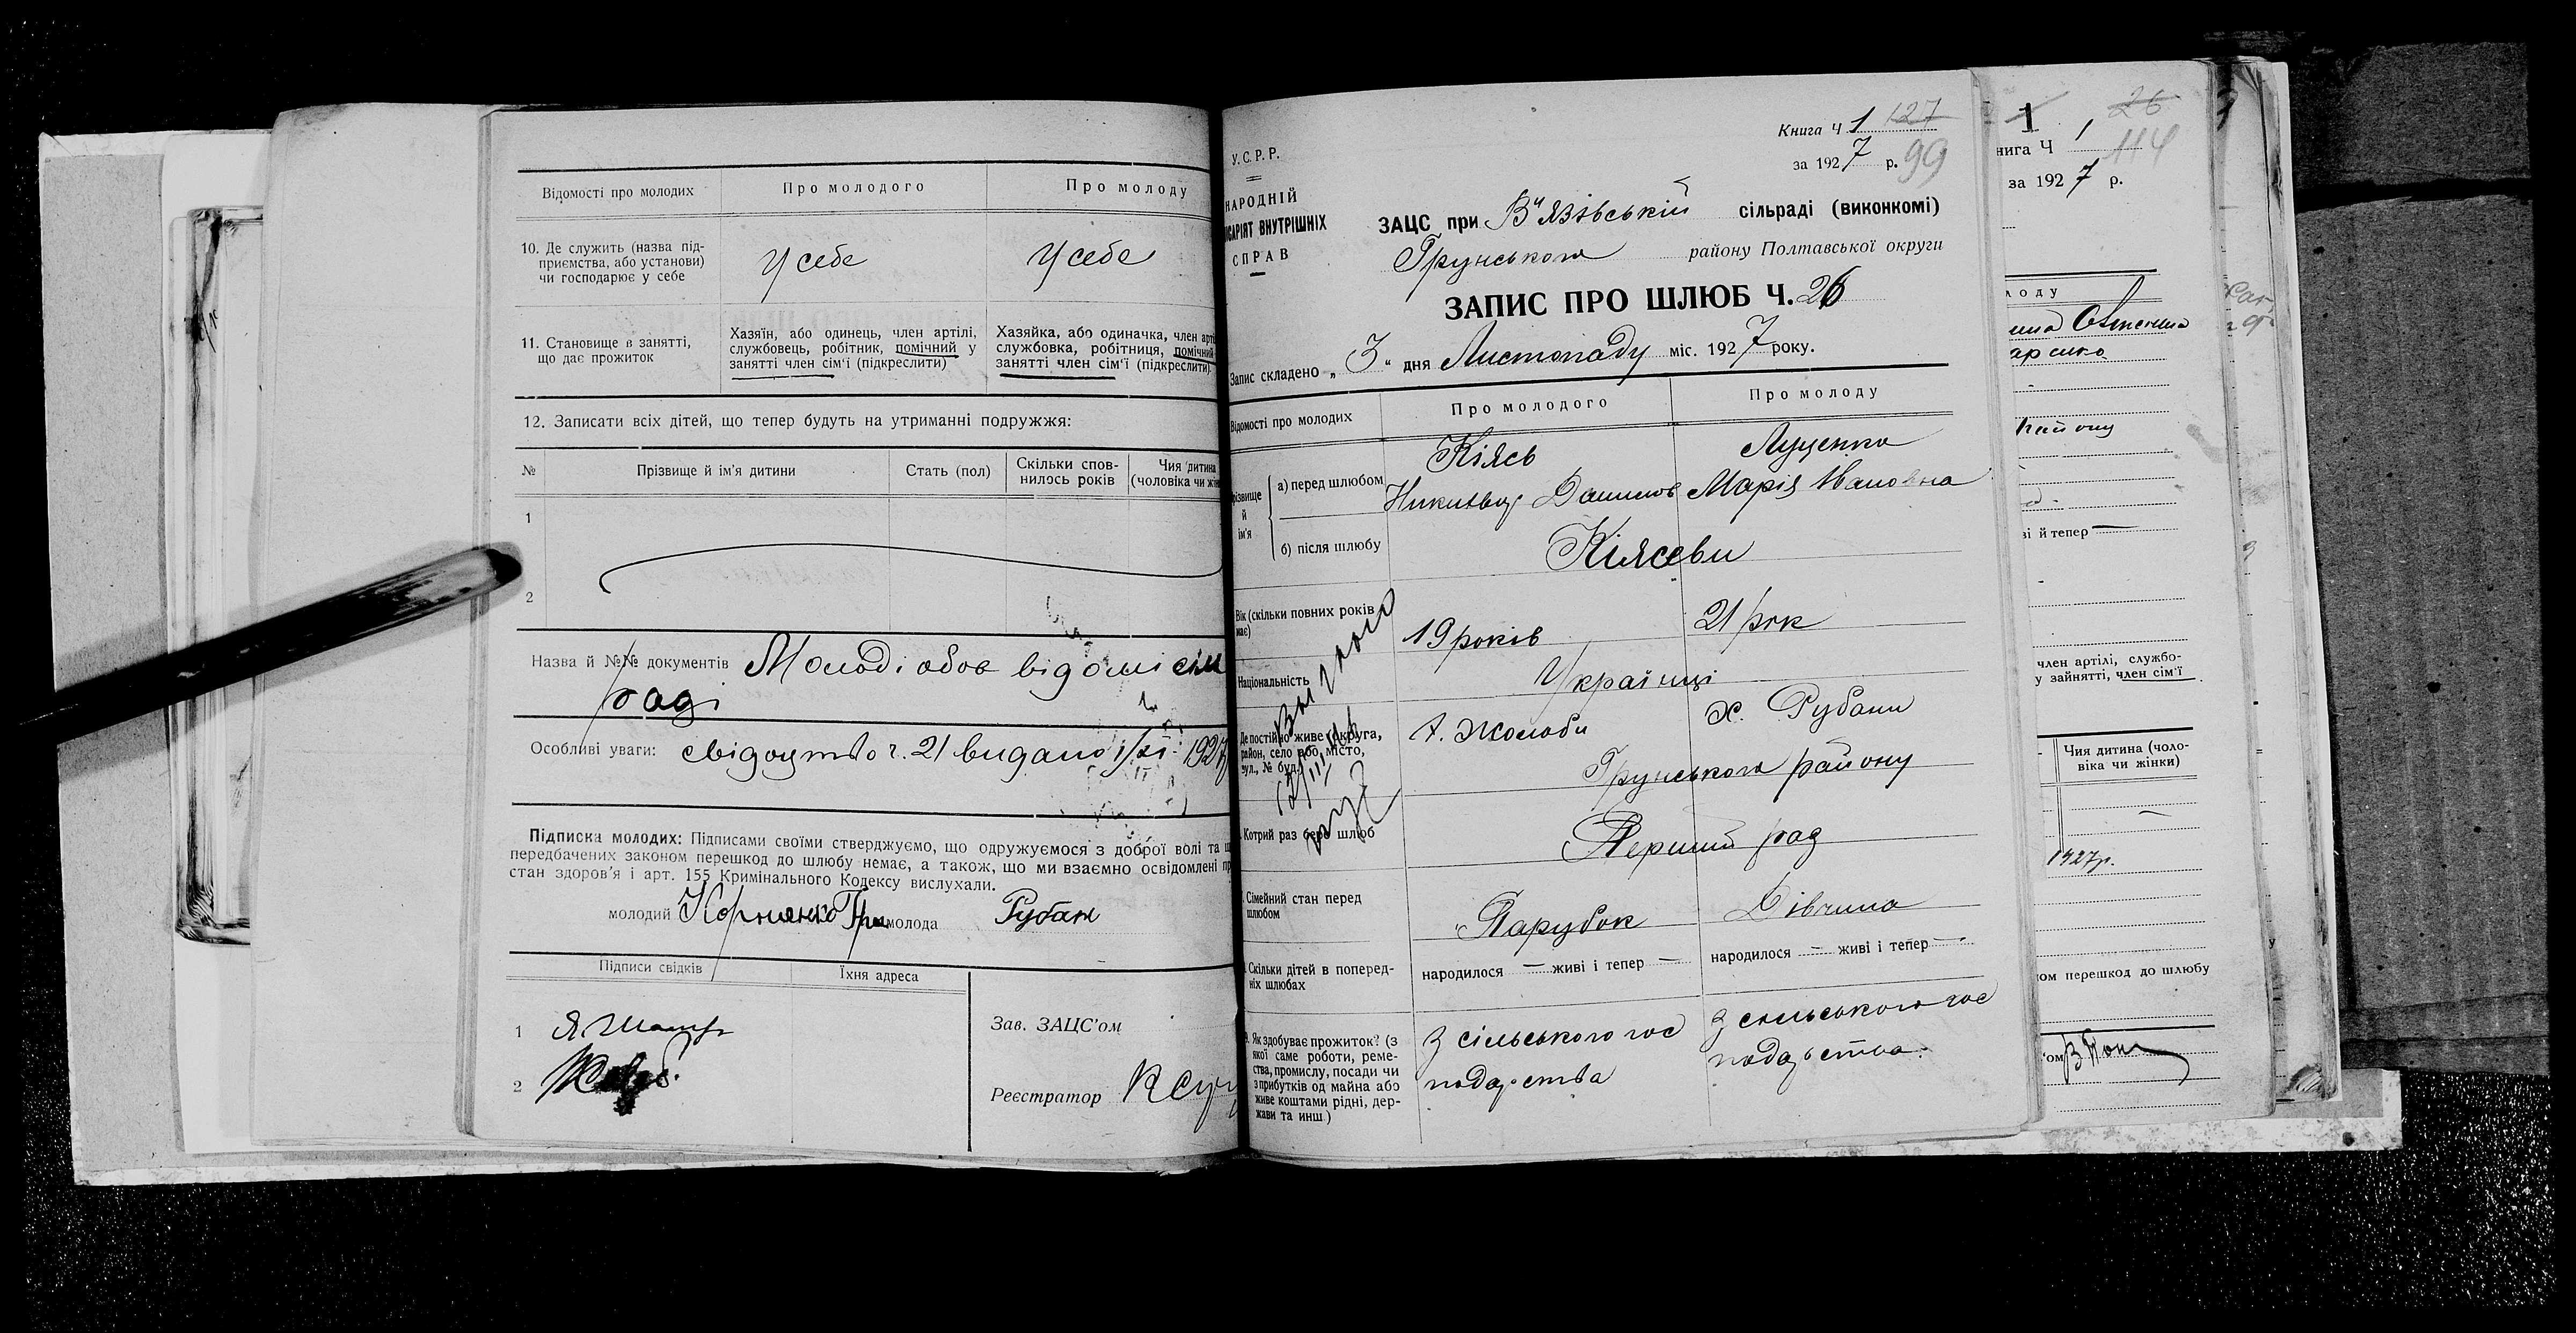 Відомості про молодих
Про молодого
Про молоду
10. Де служить (назва під-
приємства, або установи)
чи господарює у себе
У себе
У себе
11. Становище в занятті,
що дає прожиток
Хазяїн, або одинець, член артілі,
службовець, робітник, помічний у
занятті член сім'ї (підкреслити)
Хазяйка, або одиначка, член арті
службовка, робітниця, помічний
занятті член сім'ї (підкреслити)
12. Записати всіх дітей, що тепер будуть на утриманні подружжя:
№
Прізвище й ім'я дитини
Стать (пол)
Скільки спов-
нилось років
Чия дитина
(чоловіка чи жін
1
2
Назва й №№ документів Молоді обоє відомі сіль
раді
Особливі уваги: свідоцтво ч. 21 видано 1/XI 1927
Підписка молодих: Підписами своїми стверджуємо, що одружуємося з доброї волі та щ
передбачених законом перешкод до шлюбу немає, а також, що ми взаємно освідомлені пр
стан здоров'я і арт. 155 Кримінального Кодексу вислухали.
молодий Корнієнко Гри молода Рубан
Підписи свідків
Їхня адреса
1
2
Зав. ЗАЦС'ом
Реєстратор
У.С.Р.Р.
НАРОДНІЙ
КОМІСАРІЯТ ВНУТРІШНІХ
СПРАВ
Книга Ч 1 127
за 1927 р. 99
ЗАЦС при В'язівській сільраді (виконкомі)
Грунського району Полтавської округи
ЗАПИС ПРО ШЛЮБ Ч. 26
Запис складено „ 3 “ дня Листопаду міс. 1927 року.
Відомості про молодих
Про молодого
Про молоду
різвище
й
ім'я
а) перед шлюбом
Кіясь
Данилов
Луценко
Марія Івановна
б) після шлюбу
Кіясеви
Вік (скільки повних років
має)
19 років
21 рік
Національність
Українці
Де постійно живе (округа,
район, село або місто,
вул., № буд.)
х. Жолоби
х. Рубани
Грунського району
Котрий раз бере шлюб
Перший раз
Сімейний стан перед
шлюбом
Парубок
Дівчина
Скільки дітей в поперед-
ніх шлюбах
народилося — живі і тепер —
народилося — живі і тепер —
9. Як здобуває прожиток? (з
якої саме роботи, реме-
ства, промислу, посади чи
з прибутків од майна або
живе коштами рідні, дер-
жави та инш.)
З сільського гос
подарства
З сільського гос
подарства
1
26
нига Ч 1 114
за 1927 р.
лоду
району
ві й тепер —
член артілі, службо-
у зайнятті, член сім'ї
Чия дитина (чоло-
віка чи жінки)
1927р.
ом перешкод до шлюбу
'ом